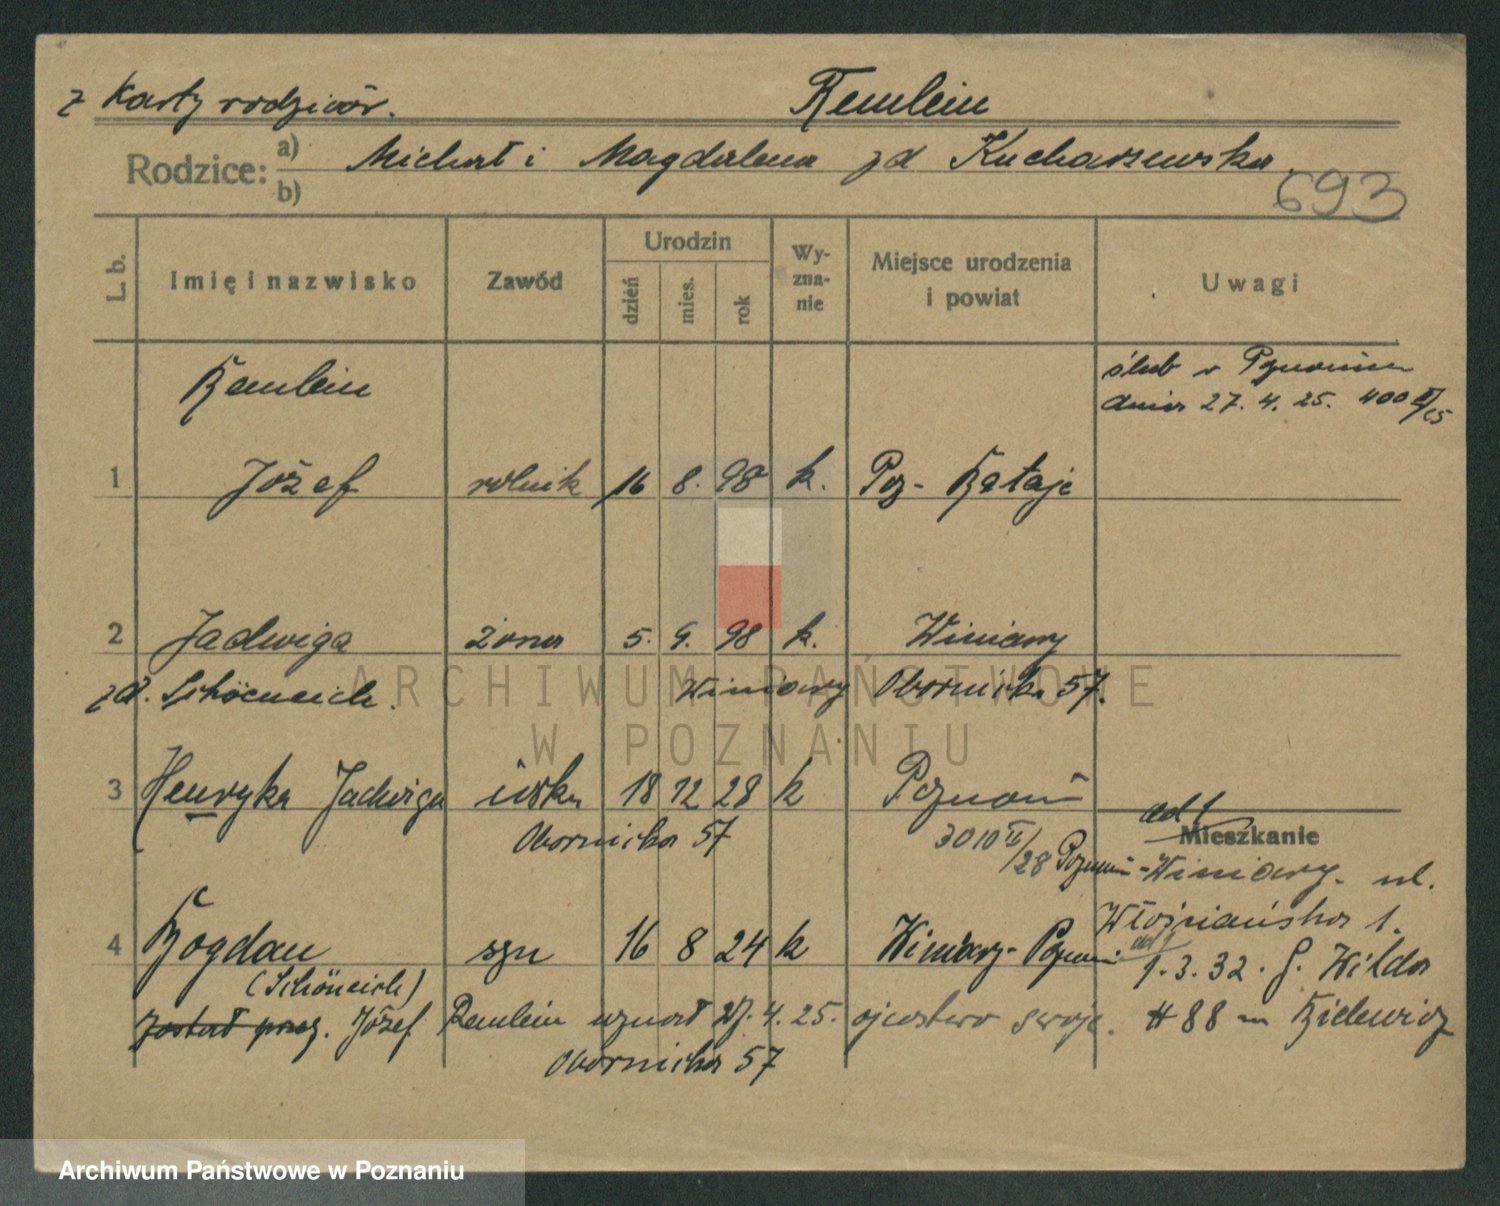 z Karty rodziców.
Remlein
Rodzice: a) b)
Michał i Magdalena zd Kucharzewska
693
L. b.
Imię i nazwisko
Zawód
Urodzin
dzień mies. rok
Wy-
zna-
nie
Miejsce urodzenia
i powiat
Uwagi
Remlein
ślub w Poznaniu
dnia 27. 4. 25. 400 II/25
1 Józef rolnik 16 8. 98 k. Poz- Rataje
2 Jadwiga żona 5. 9. 98 k. Winiary
zd. Schöeneich. Winiary Obornicka 57.
3 Henryka Jadwiga córka 18 12 28 k Poznań
Obornicka 57
3010 II/28 Poznań
ad 1
Mieszkanie
Winiary. ul.
Włościańska 1.
4 Bogdan syn 16 8 24 k Winiary- Poznań
ad 1
1. 3. 32. G. Wilda
(Schöneich)
Został prez. Józef Remlein uznał 27. 4. 25. ojcostwo swoje.
# 88 m Kielewicz
Obornicka 57
ARCHIWUM PAŃSTWOWE
W POZNANIU
Archiwum Państwowe w Poznaniu